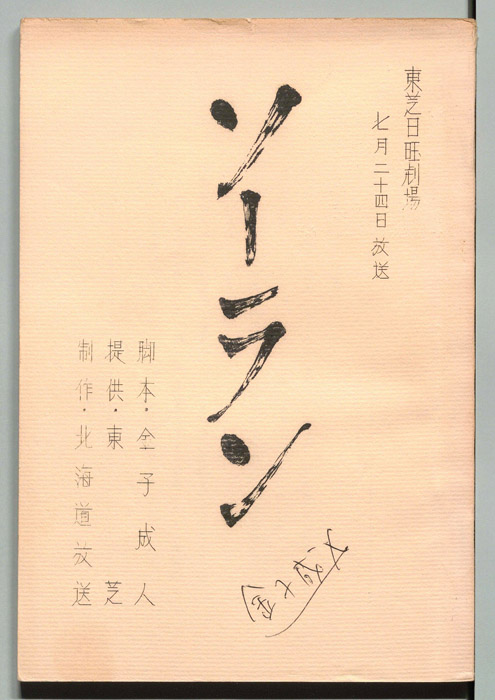 東芝日旺劇場
七月二十四日放送
ソーラン
脚本・金子成人
提供・東芝
制作・北海道放送